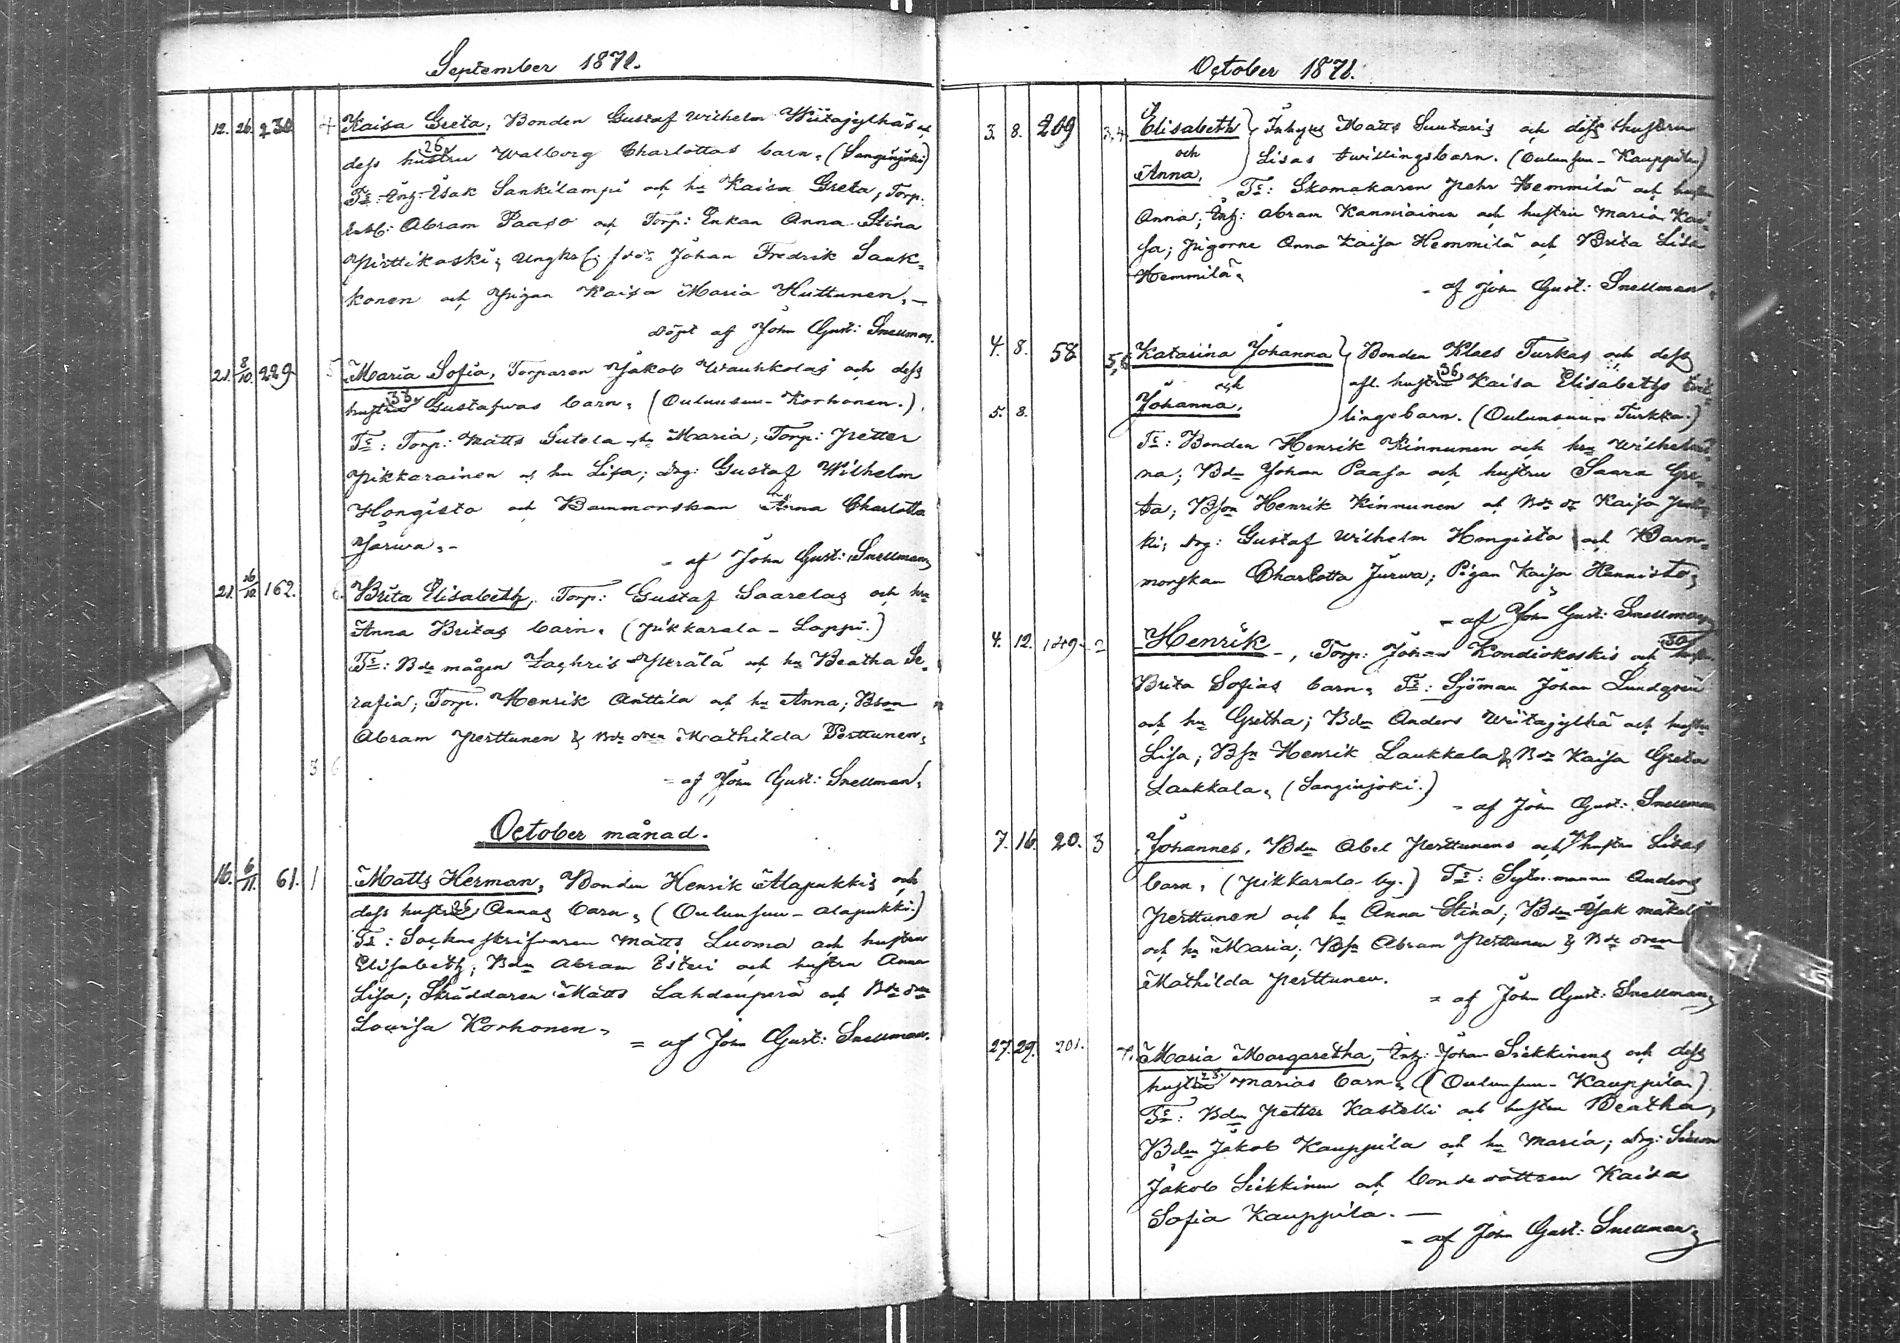 September 1871.
12. 26. 230. 4 Kaisa Greta, Bonden Gustaf Wilhelm Wiitajylhäs och
dess hustru 26 Walborg Charlottas barn, (Sanginjoki)
Ts: Inh: Isak Sankilampi och hu Kaisa Greta, Torp.
Enkl: Abram Paaso och Torp: Enkan Anna Stina
Pirttikoski, Ungk: Johan Fredrik Sauk-
konen och Pigan Kaisa Maria Huttunen,-
döpt af John Gust: Snellman.
21. 8/10. 229 5 Maria Sofia, Torparen Jakob Waukkolas och dess
hustru 33 Gustafwas barn, (Oulunsuu - Korhonen.)
Ts: Torp: Matts Sutela, hu Maria, Torp: Petter
Pikkarainen o hu Lisa; drg: Gustaf Wilhelm
Hongisto och Barnmorskan Anna Charlotta
Jarwa,-
= af John Gust: Snellman,
21. 16/10. 162. 6. Brita Elisabeth, Torp: Gustaf Saarelas och hu
Anna Britas barn, (Pikkarala - Loppi.)
Ts: Bde mågen Zachris Perälä och hu Beatha Se-
rafia; Torp. Henrik Anttila och hu Anna; Bson
Abram Perttunen & Bde dren Mathilda Perttunen,
3 6
= af John Gust: Snellman,
October månad.
16. 6/11. 61. 1 Matts Herman, Bonden Henrik Alapukkis och
dess hustru 25 Annas barn, (Oulunsuu - Alapukki)
Ts: Sockneskrifvaren Matts Luoma och hustru
Elisabeth; Bdn Abram Esteri och hustru Anna
Lisa; Skräddaren Matts Lahdenperä och Bde dren
Lovisa Korhonen,
= af John Gust: Snellman.
October 1871.
3. 8. 209 3,4 Elisabeth Inhys Matts Suutaris och dess hustru
och Lisas twillingsbarn. (Oulunsuu - Kauppila)
Anna, Ts: Skomakaren Pehr Hemmilä och hustru
Anna; Inh: Abram Kanniainen och hustru Maria Kai-
sa; Pigorne Anna Kaisa Hemmilä och Brita Lisa
Hemmilä,
= af John Gust: Snellman,
4. 8. 58 5,6 Katarina Johanna Bonden Klaes Turkas och dess
och afl. hustru 36 Kaisa Elisabeths twil-
5. 8. Johanna, lingsbarn. (Oulunsuu - Turkka.)
Ts: Bonden Henrik Kinnunen och hu Wilhelmi-
na; Bdn Johan Paaso och hustru Saara Gre-
ta; Bson Henrik Kinnunen och Bde dr Kaisa
ki; drg: Gustaf Wilhelm Hongista och Barn-
morskan Charlotta Jurwa; Pigan Kaisa Hannisto,
= af John Gust: Snellman,
4. 12. 149. 2 Henrik -, Torp: Johan Kondiokoskis och hustru 30
Brita Sofias barn, Ts: Sjöman Johan Lundgren
och hu Gretha; Bdn Anders Wiitajylhä och hustru
Lisa; Bsn Henrik Laukkala & Bdr Kaisa Greta
Laukkala, (Sanginjoki.)
= af John Gust: Snellman
7. 16. 20. 3 Johannes, Bdn Abel Perttunens och hustru Lisas
barn, (Pikkarala by.) Ts: Anders
Perttunen och hu Anna Stina; Bdn Isak Mäkelä
och hu Maria; Bsn Abram Perttunen & Bde dren
Mathilda Perttunen.
= af John Gust: Snellman,
27. 29. 201. 7. Maria Margaretha, Inh: Johan Siekkinens och dess
hustru 23 Marias barn, (Oulunsuu - Kauppila)
Ts: Bdn Petter Kastelli och hustru Beatha,
Bdn Jakob Kauppila och hu Maria; drg: Simon
Jakob Siekkinen och bondedottren Kaisa
Sofia Kauppila. -
= af John Gust: Snellman,